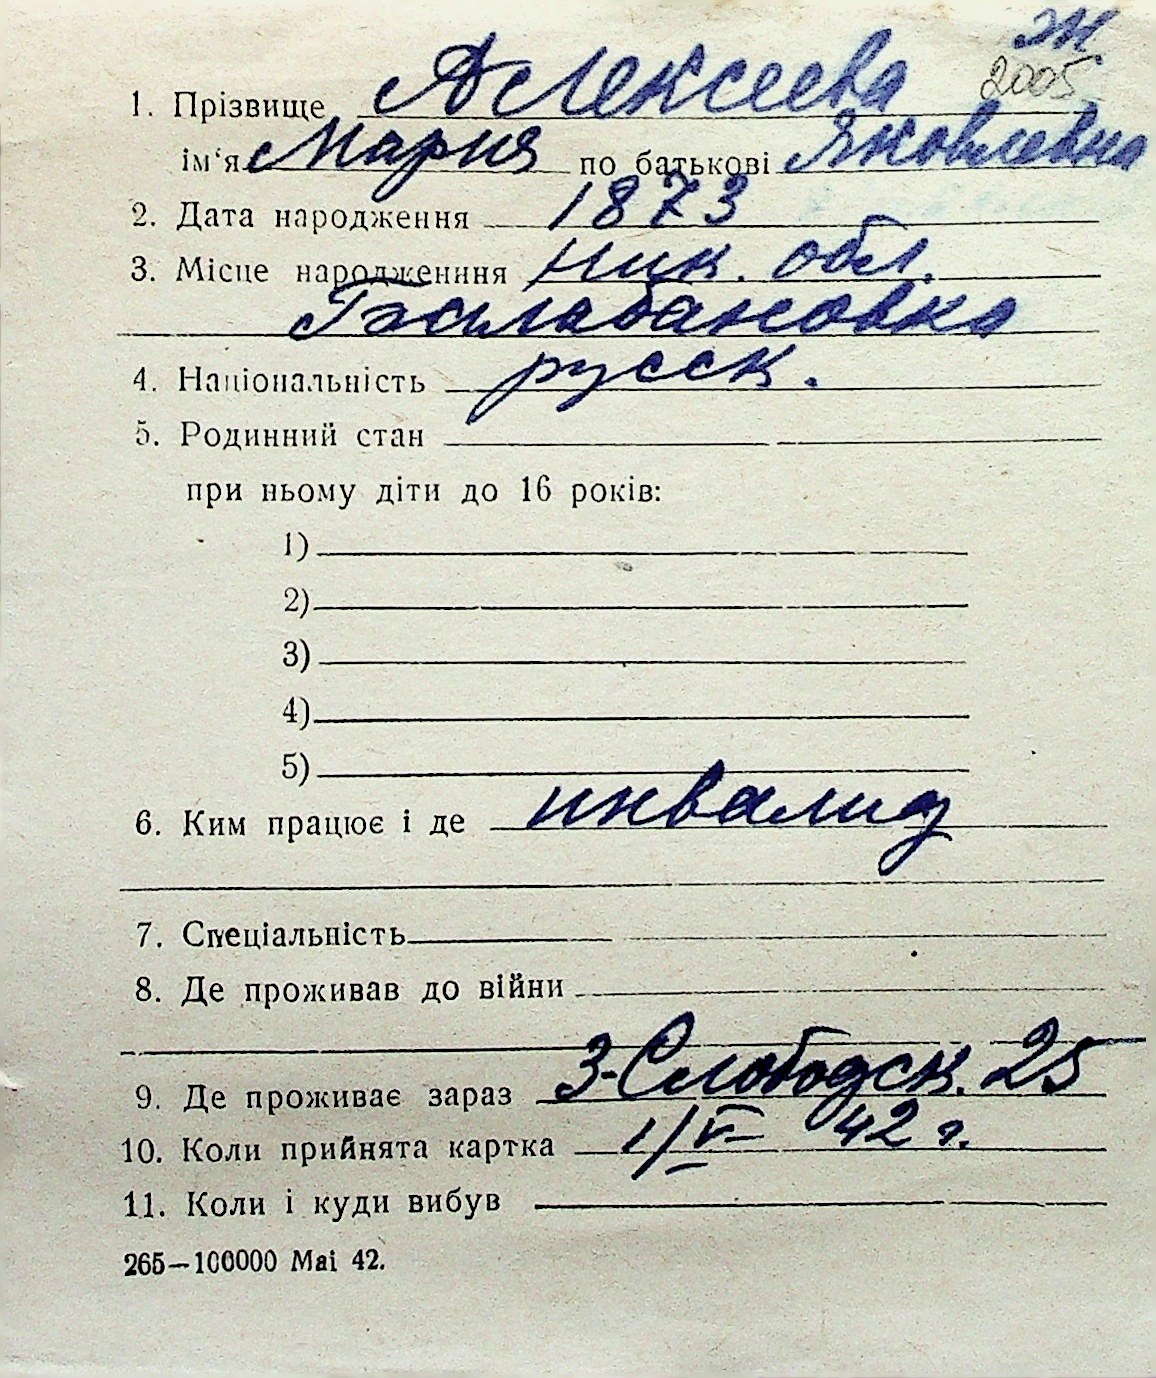 Ж
2005
1. Прізвище Алексеева
ім‘я Мария по батькові Яковлевна
2. Дата народження 1873
3. Місце народенння Ник. обл.
Балабановка
4. Національність русск.
5. Родинний стан
при ньому діти до 16 років:
1)
2)
3)
4)
5)
6. Ким працює і де инвалид
7. Спеціальність
8. Де проживав до війни
9. Де проживає зараз 3-Слободск. 25
10. Коли прийнята картка 1/V 42 г.
11. Коли і куди вибув
265—100000 Mai 42.